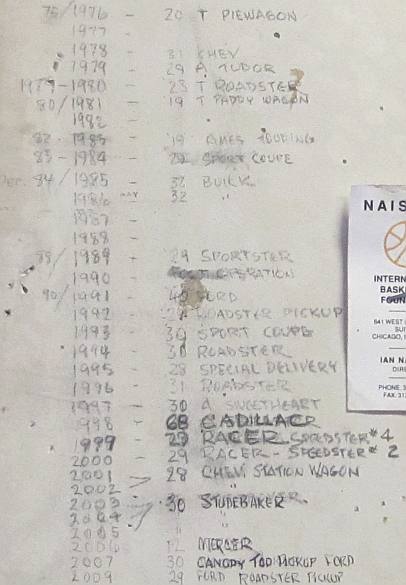 75/1976 - 20 T PIEWAGON
1977 -
1978 - 31 CHEV
1979 - 29 A TUDOR
1979-1980 - 23 T ROADSTER
80/1981 - 19 T PADDY WAGON
1982 -
82- 1983 - 19 TOURING
83-1984 - SPORT COUPE
84/1985 - 32 BUICK
1986 - 32 "
1987 -
1988 -
1989 - 29 SPORTSTER
1990 - OPERATION
90/1991 - 40 FORD
1992 - ROADSTER PICKUP
1993 - 30 SPORT COUPE
1994 - ROADSTER
1995 - 28 SPECIAL DELIVERY
1996 - 31 ROADSTER
1997 - 30 A SWEETHEART
1998 - 68 CADILLAC
1999 - 29 RACER SPEEDSTER #4
2000 - 29 RACER - SPEEDSTER # 2
2001 28 CHEV STATION WAGON
2002
2003 30 STUDEBAKER
2004 "
2005 "
2006 12 MERCER
2007 30 CANOPY TOP PICKUP FORD
2009 29 FORD ROADSTER PICKUP
NAIS
INTERN
BASK
FOUN
541 WEST
SU
CHICAGO, I
IAN NA
DIRE
PHONE 3
FAX 31